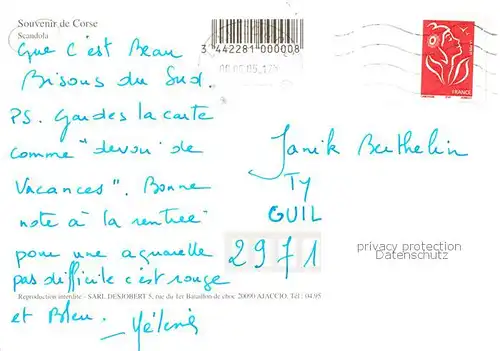 Souvenir de Corse
Scandola
3 442281 000008
Que c'est Beau
Bisous du Sud.
PS. Gardes la carte
comme "devoir de
Vacances". Bonne
note à la rentrée
pour une aquarelle
pas difficile c'est rouge
Reproduction interdite - SARL DESJOBERT 5, rue du 1er Bataillon de choc 20090 AJACCIO. Tél : 04.95
et Bleu.
FRANCE
Janik Berthelin
TY
GUIL
2971
privacy protection
Datenschutz